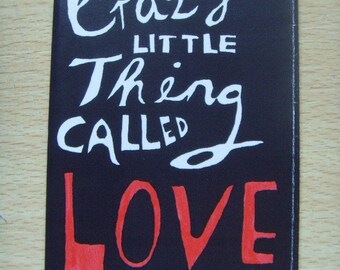 Crazy
LITTLE
Thing
CALLED
LOVE